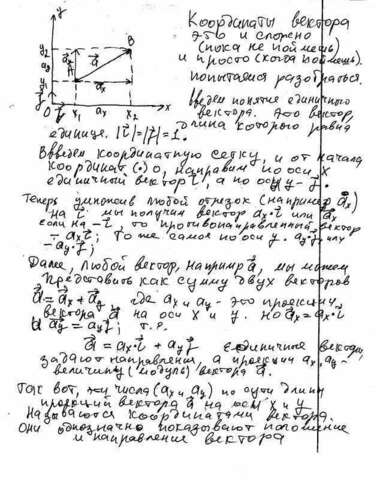 Координаты вектора
это и сложно
(пока не поймешь)
и просто (когда поймешь).
попытаемся разобраться.
y
y₂
a_y
y₁
O
x₁
a_x
x₂
x
B
a⃗
Введем понятие единичного
вектора. Это вектор,
длина которого равна
единице. |i⃗|=|j⃗|=1.
Введем координатную сетку, и от начала
координат (·) O, направим по оси x
единичный вектор i⃗, а по оси y - j⃗.
Теперь умножив любой отрезок (например a_x)
на i⃗ мы получим вектор a_x·i⃗ или a⃗_x
если на -i⃗, то противонаправленный вектор
-a_x·i⃗; То же самое по оси y. a_y·j⃗ или
-a_y·j⃗;
Далее, любой вектор, например a⃗, мы можем
представить как сумму двух векторов
a⃗ = a⃗_x + a⃗_y где a_x и a_y - это проекции
вектора a⃗ на оси x и y. но a⃗_x = a_x·i⃗
и a⃗_y = a_y·j⃗; т.е.
a⃗ = a_x·i⃗ + a_y·j⃗ единичные векторы,
задают направления, а проекции a_x, a_y -
величину (модуль) вектора a⃗.
Так вот, эти числа (a_x и a_y) по сути длины
проекций вектора a⃗ на оси x и y
называются координатами вектора.
Они однозначно показывают положение
и направление вектора